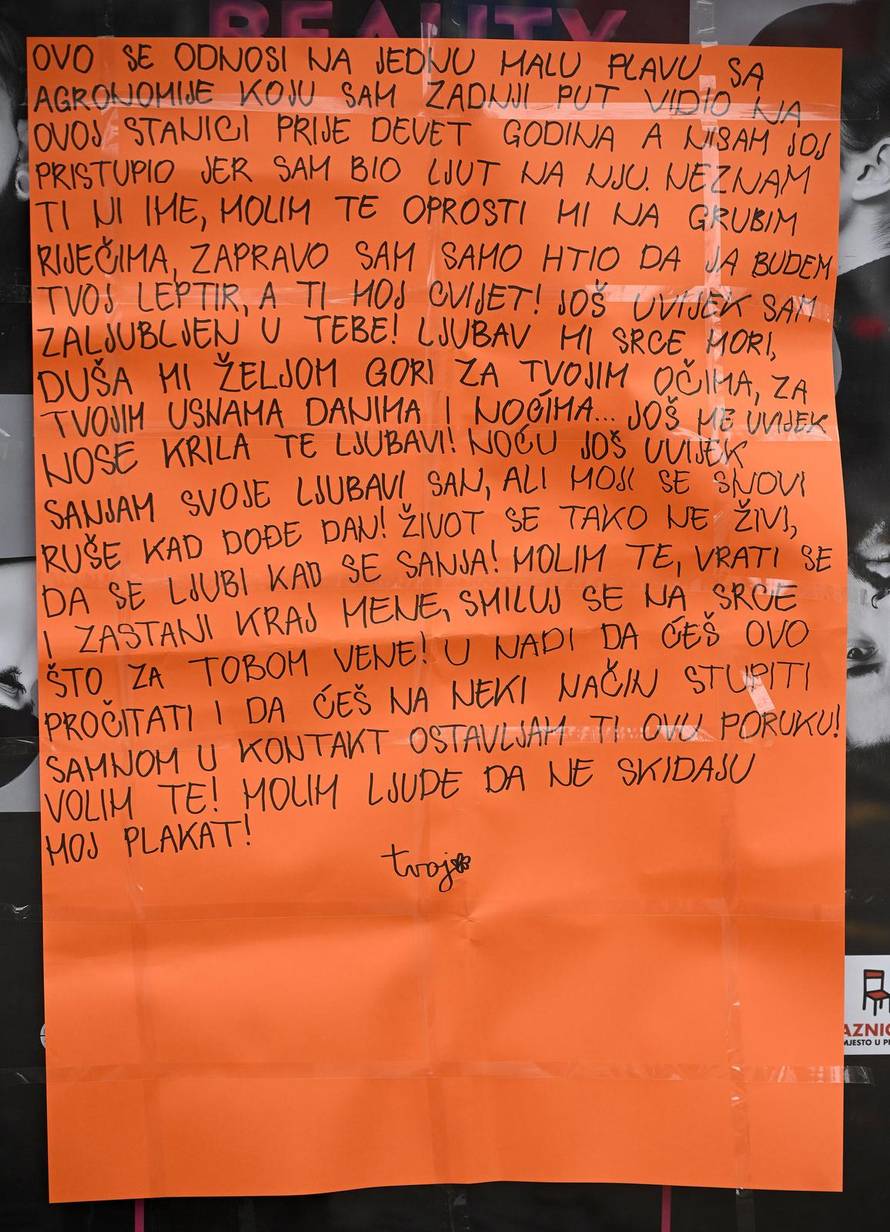 REALITY
OVO SE ODNOSI NA JEDNU MALU PLAVU SA
AGRONOMIJE KOJU SAM ZADNJI PUT VIDIO NA
OVOJ STANICI PRIJE DEVET GODINA A NISAM JOJ
PRISTUPIO JER SAM BIO LJUT NA NJU. NEZNAM
TI NI IME, MOLIM TE OPROSTI MI NA GRUBIM
RIJEČIMA, ZAPRAVO SAM SAMO HTIO DA JA BUDEM
TVOJ LEPTIR, A TI MOJ CVIJET! JOŠ UVIJEK SAM
ZALJUBLJEN U TEBE! LJUBAV MI SRCE MORI,
DUŠA MI ŽELJOM GORI ZA TVOJIM OČIMA, ZA
TVOJIM USNAMA DANIMA I NOĆIMA... JOŠ ME UVIJEK
NOSE KRILA TE LJUBAVI! NOĆU JOŠ UVIJEK
SANJAM SVOJE LJUBAVI SAN, ALI MOJI SE SNOVI
RUŠE KAD DOĐE DAN! ŽIVOT SE TAKO NE ŽIVI,
DA SE LJUBI KAD SE SANJA! MOLIM TE, VRATI SE
I ZASTANI KRAJ MENE, SMILUJ SE NA SRCE
ŠTO ZA TOBOM VENE! U NADI DA ĆEŠ OVO
PROČITATI I DA ĆEŠ NA NEKI NAČIN STUPITI
SAMNOM U KONTAKT OSTAVLJAM TI OVU PORUKU!
VOLIM TE! MOLIM LJUDE DA NE SKIDAJU
MOJ PLAKAT!
tvoj